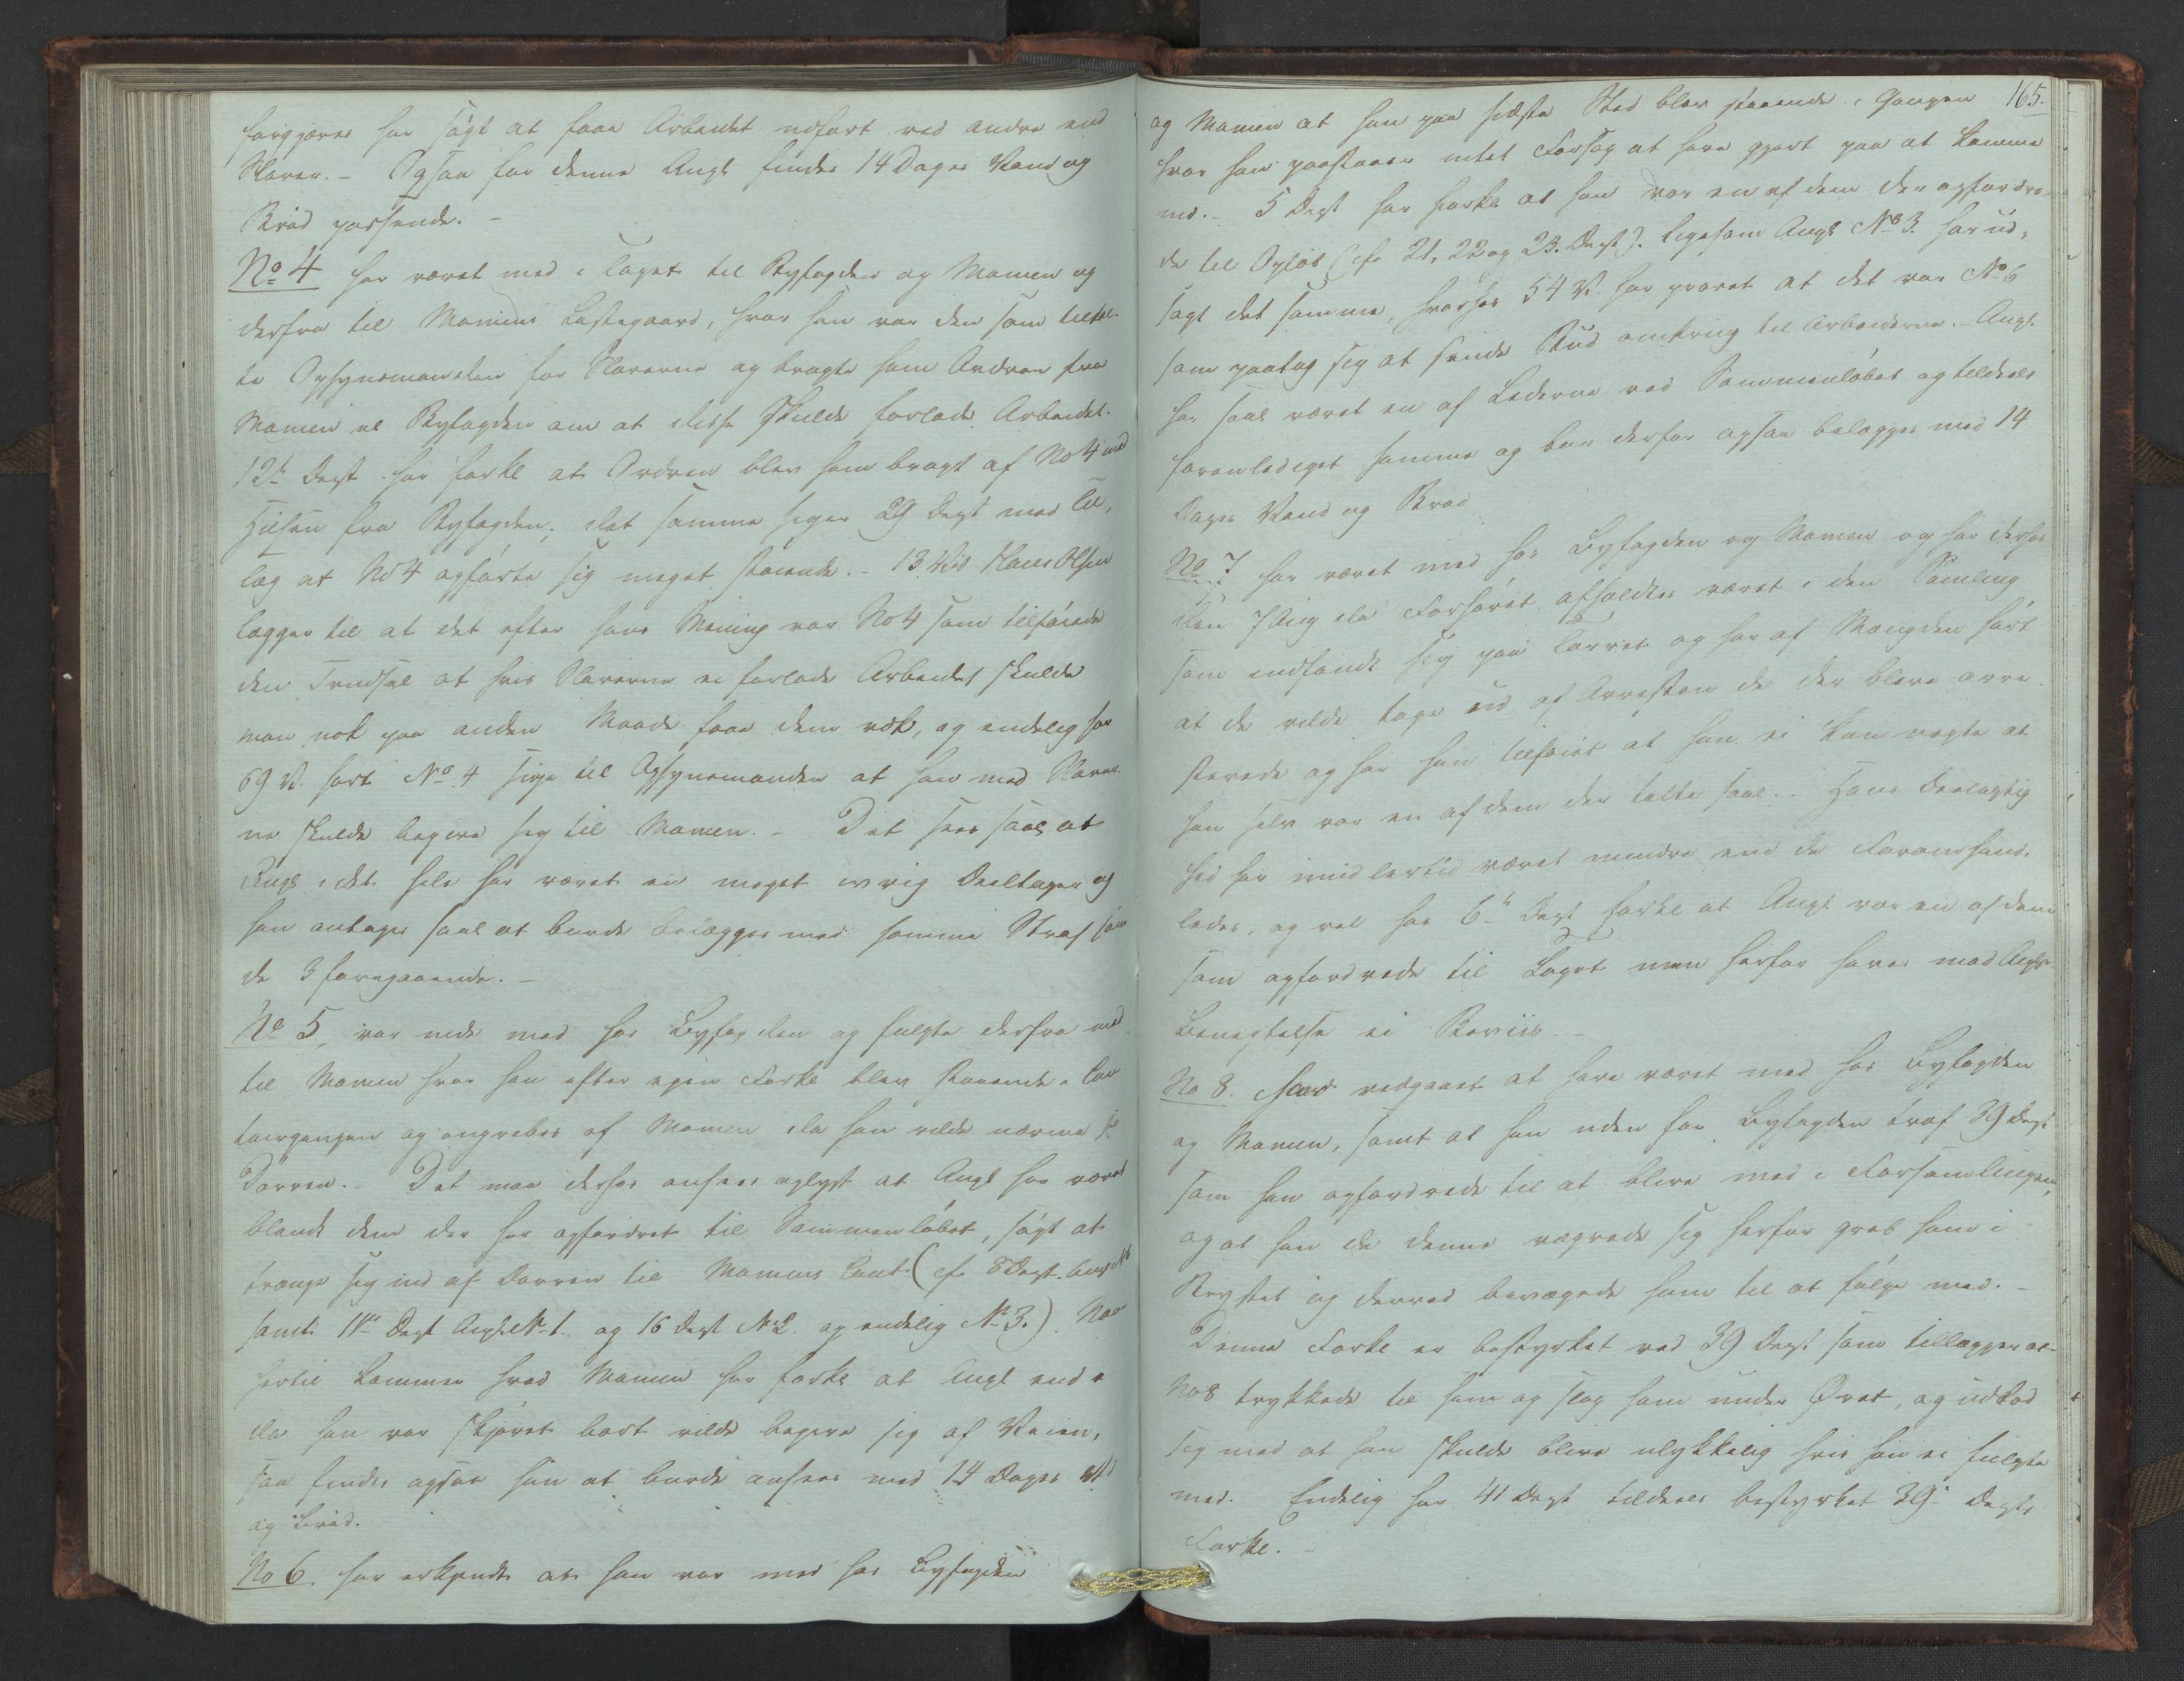 forgjæves har søgt at faae Arbeidet udført ved andre end
Slaver. – Ogsaa for denne Angl findes 14 Dages Vand og
Brød passende. –
No 4 har været med i Toget til Byfogden og Mamen og
derfra til Mamens Lastegaard, hvor han var den som tiltal-
te Opsynsmanden for Slaverne og bragte ham Ordren fra
Mamen el Byfogden om at disse skulde forlade Arbeidet.
12te Depst har forkl at Ordren blev ham bragt af No 4 med
Hilsen fra Byfogden; det samme siger 29 Depst med Til,
læg at No 4 opførte sig meget støiende. – 13 Vid Hans Olsen
lægger til at det efter hans Mening var No 4 som tilføiede
den Trudsel at hvis Slaverne ei forlade Arbeidet skulde
man nok paa anden Maade faae dem væk, og endelig har
69 V. hørt No 4 sige til Opsynsmanden at han med Slaver-
ne skulde begive sig til Mamen. – Det sees saal at
Angl i det hele har været en meget ivrig Deeltager og
han antages saal at burde belægges med samme Straf som
de 3 foregaaende. –
No 5, var med hos Byfogden og fulgte derfra med
til Mamen hvor han efter egen Forkl blev staaende i Con
toirgangen og angrebes af Mamen da han vilde nærme sig
Dørren. – Det maa derhos ansees oplyst at Angl har været
blandt dem der har opfordret til Sammenløbet, søgt at
trænge sig ind af Dørren til Mamens Cont (cfr 8 Depst.
samt 11te Depst Angl No 1. og 16 Depst No 2 og endelig No 3.). Naar
hertil kommer hvad Mamen har forkl at Angl end i
da han var skjøvet bort vilde begive sig af Veien,
saa findes ogsaa han at burde ansees med 14 Dages Vd
og Brød.
No 6. har erkjendt at han var med hos Byfogden
165.
og Mamen at han paa sidste Sted blev staaende i Gangen
hvor han paastaaer intet Forsøg at have gjort paa at komme
ind. – 5 Depst har forkl at han var en af dem der opfordre-
de til Opløb (cfr 21, 22 og 23. Depst). ligesom Angl No 3. har ud,
sagt det samme, hvorhos 54 V. har prøvet at det var No 6
som paatog sig at sende Bud omkring til Arbeiderne. – Angl.
har saal været en af Lederne ved Sammenløbet og tildeels
foranlediget samme og bør derfor ogsaa belægges med 14
Dages Vand og Brød
No 7 har været med hos Byfogden og Mamen og har derhos
den 7 Aug da Forhøret afholdtes været i den Samling
som indfandt sig paa Torvet og har af Mængden hørt
at de vilde tage ud af Arresten de der bleve arre-
sterede og har han tilføiet at han ei kan negte at
han selv var en af dem der talte saal. – Hans Deelagtig
hed har imidlertid været mindre end de Foranhand,
ledes, og vel har 6te Depst forkl at Angl var en af dem
som opfordrede til Toget men herfor haves mod Angls
Benegtelse ei Beviis. –
No 8. har vedgaaet at have været med hos Byfogden
og Mamen, samt at han uden for Byfogden traf 39 Depst
som han opfordrede til at blive med i Forsamlingen,
og at han da denne vægrede sig herfor greb ham i
Brystet og derved bevægede ham til at følge med. –
Denne Forkl er bestyrket ved 39 Depst som tillægger at
No 8 trykkede til ham og slog ham under Øret, og udlod
sig med at han skulde blive ulykkelig hvis han ei fulgte
med. Endelig har 41 Depst tildeels bestyrket 39 Depsts
Forkl. –